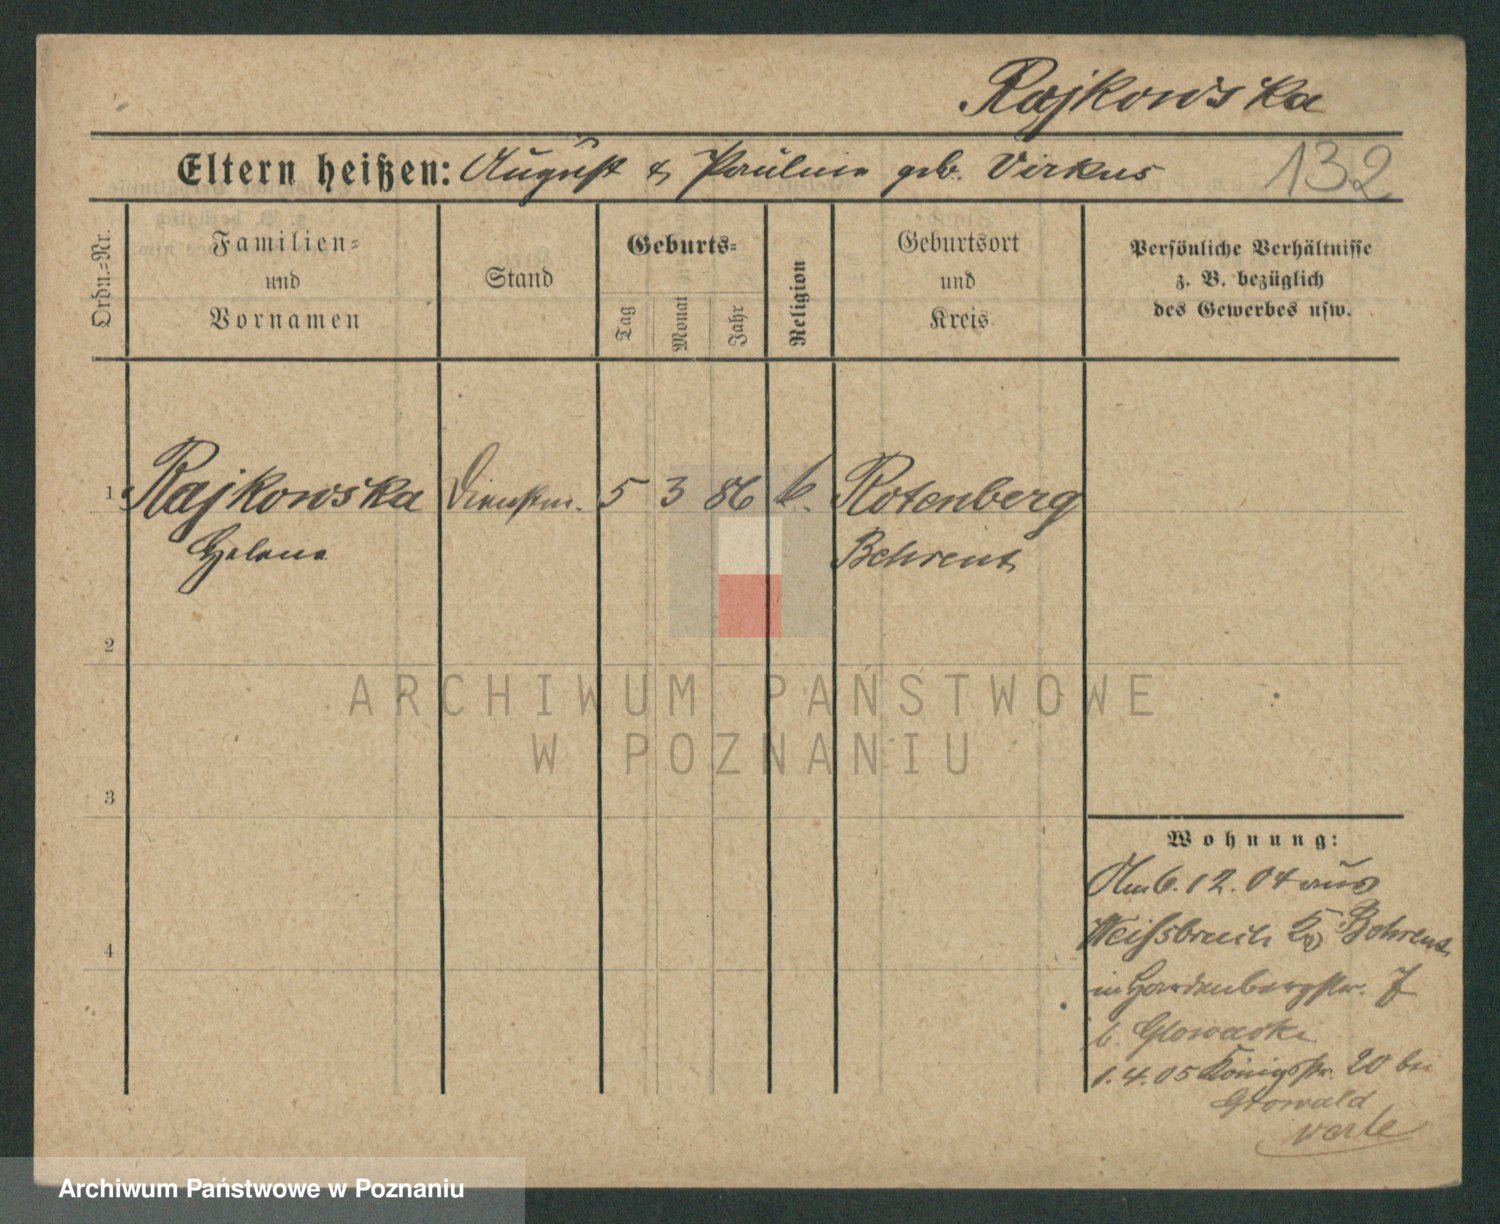 Rajkowska
Eltern heißen: August & Pauline geb. Virkus
132
Ordn.=Nr.
Familien=
und
Vornamen
Stand
Geburts=
Tag
Monat
Jahr
Religion
Geburtsort
und
Kreis
Persönliche Verhältnisse
z. B. bezüglich
des Gewerbes usw.
1 Rajkowska Dienstm. 5 3 86 k. Rotenberg
Helene Behrent
2
ARCHIWUM PAŃSTWOWE
W POZNANIU
3
Wohnung:
Am 6. 12. 04 aus
Weissbruch Behrent
in Hardenbergstr. 7
b. Glowacki
1. 4. 05 Königsstr. 20 bei
Growald
verte
4
Archiwum Państwowe w Poznaniu